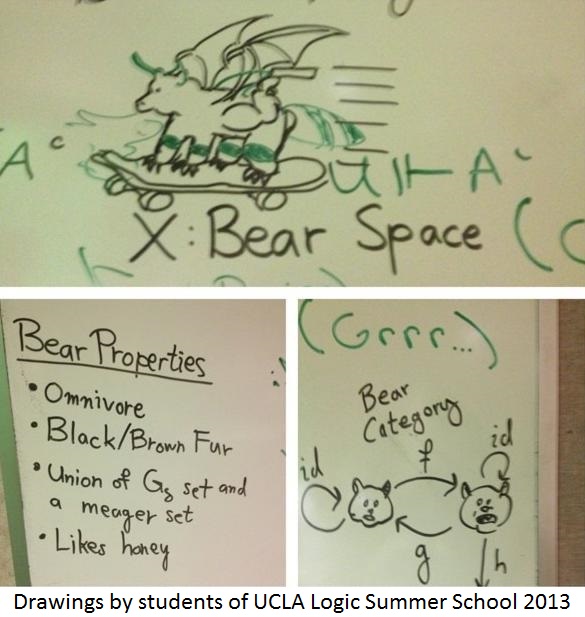 A c
U ⊩ A
X: Bear Space (
Bear Properties
• Omnivore
• Black/Brown Fur
• Union of Gδ set and
a meager set
• Likes honey
(Grrr...)
Bear
Category
id
f
id
g
h
Drawings by students of UCLA Logic Summer School 2013